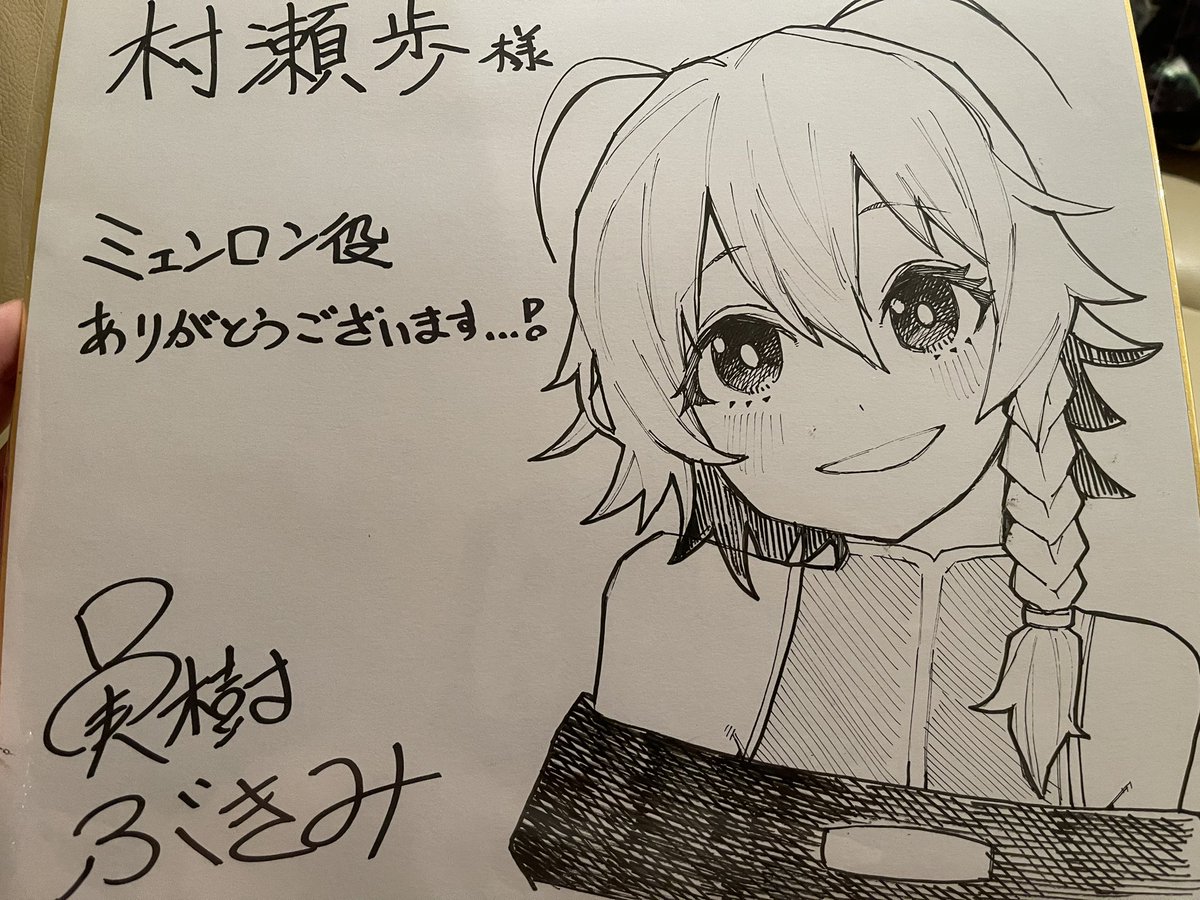 村瀬歩様
ミェンロン役
ありがとうございます…!
実樹
ぶきみ